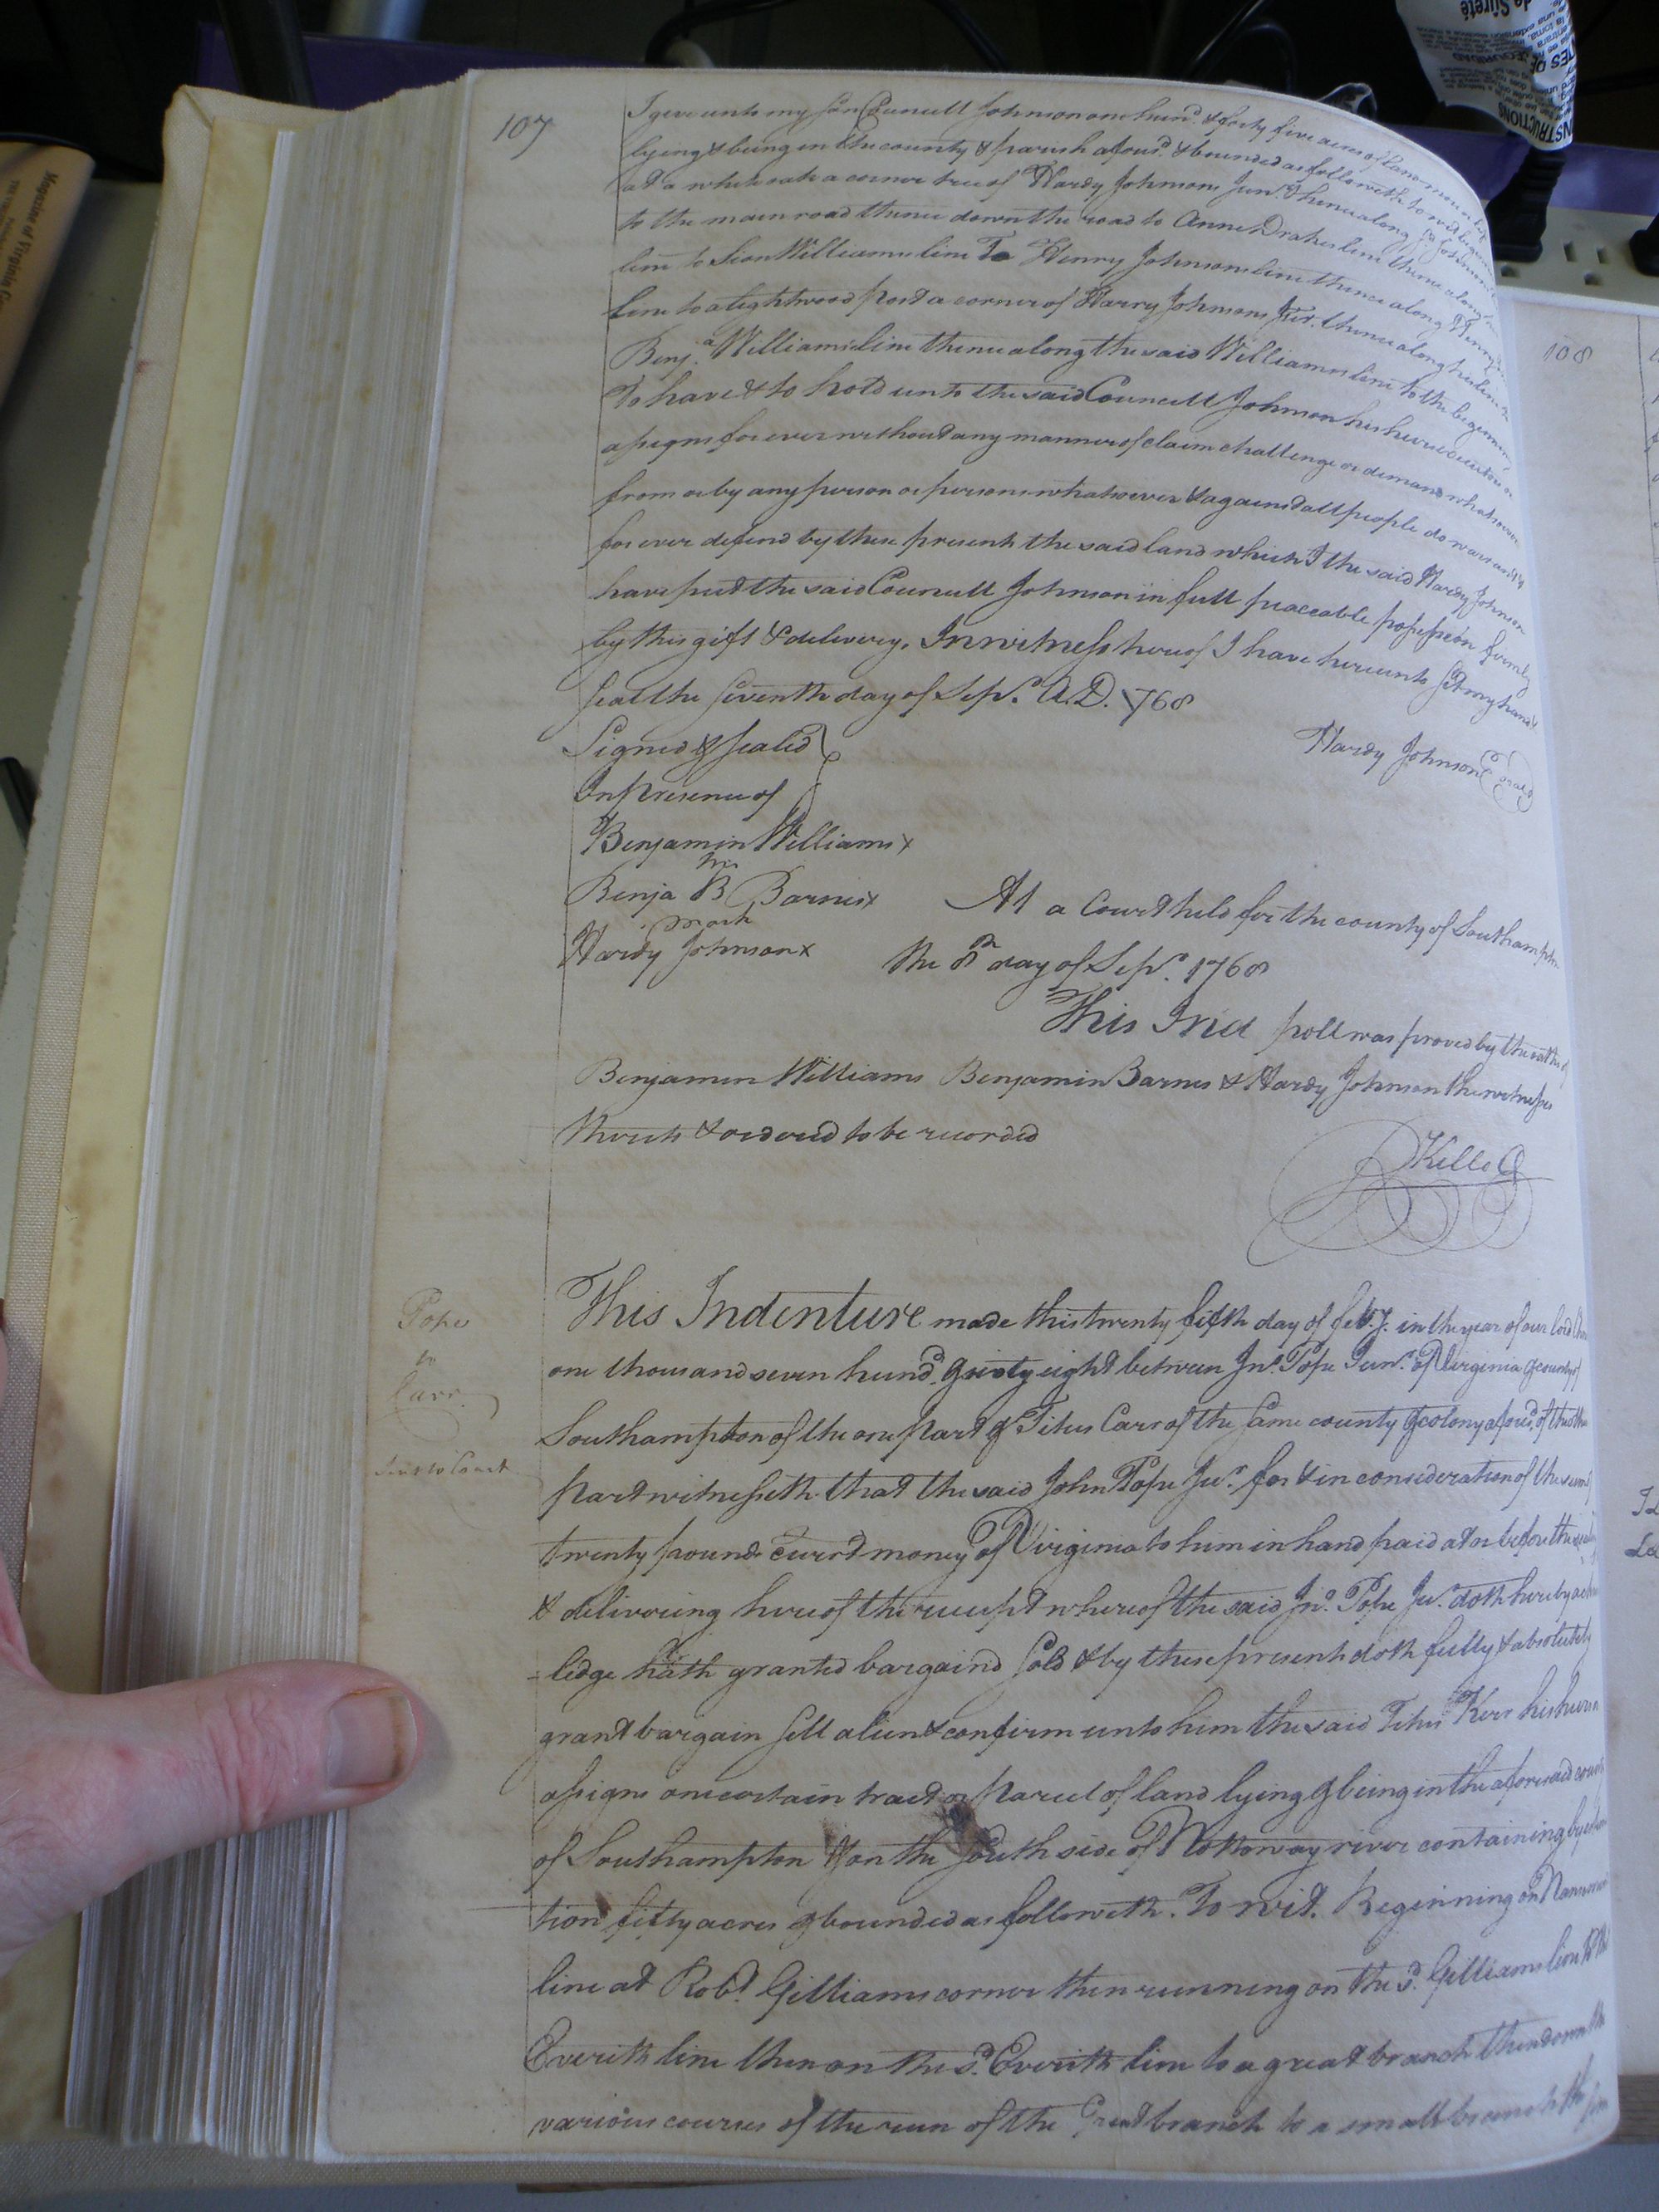 107
I give unto my son Councill Johnson one hund. & forty five acres of land more or less
lying & being in the county & parish afousd. & bounded as followeth to wit begining
at a white oak a corner tree of Hardy Johnsons Junr. Thence along
to the main road thence down the road to Anne Drakes line thence along
line to Sion Williams line To Henry Johnsons line thence along Henry
line to a lightwood post a corner of Harry Johnsons Jur. thence along his line
Benja. Williams line thence along the said Williams line to the begining
To have & to hold unto the said Councill Johnson his heirs executors or
assigns for ever without any manner of claim challenge or demand whatsoever
from or by any person or persons whatsoever & against all people do warrant &
for ever defend by these presents the said land which I the said Hardy Johnson
have put the said Councill Johnson in full peaceable possession firmly
by this gift & delivery. In witness hereof I have hereunto set my hand &
seal the seventh day of Sepr. A.D. 1768
Signed & sealed
In presence of
Hardy Johnson (Seal)
Benjamin Williams x
his
Benja B Barnes x
mark
Hardy Johnson x
At a Court held for the county of Southampton
the 8th day of Sepr. 1768
This Ind poll was proved by the oaths of
Benjamin Williams Benjamin Barnes & Hardy Johnson the witnesses
thereto & ordered to be recorded
RKello
Pope
to
Carr.
This Indenture made this twenty fifth day of feby. in the year of our lord
one thousand seven hund. & sixty eight between Jno. Pope Junr. of Virginia & county of
Southampton of the one part & Titus Carr of the same county & colony afousd. of the other
part witnesseth that the said John Pope Jur. for & in consideration of the sum of
twenty pounds currt money of Virginia to him in hand paid at or before the
& delivering hereof the receipt whereof the said Jno. Pope Jur. doth hereby
-ledge hath granted bargaind sold & by these presents doth fully & absolutely
grant bargain sell alien & confirm unto him the said Titus Kerr his heirs
assigns one certain tract or parcel of land lying & being in the aforesaid county
of Southampton & on the South side of Nottoway river containing by
tion fifty acres & bounded as followeth. To wit. Beginning on
line at Robt. Gilliams corner then running on the sd. Gilliams line to the
Everits line then on the sd. Everits line to a great branch then down the
various courses of the run of the Great branch to a small branch
108
Magazine of Virginia
de Sûreté